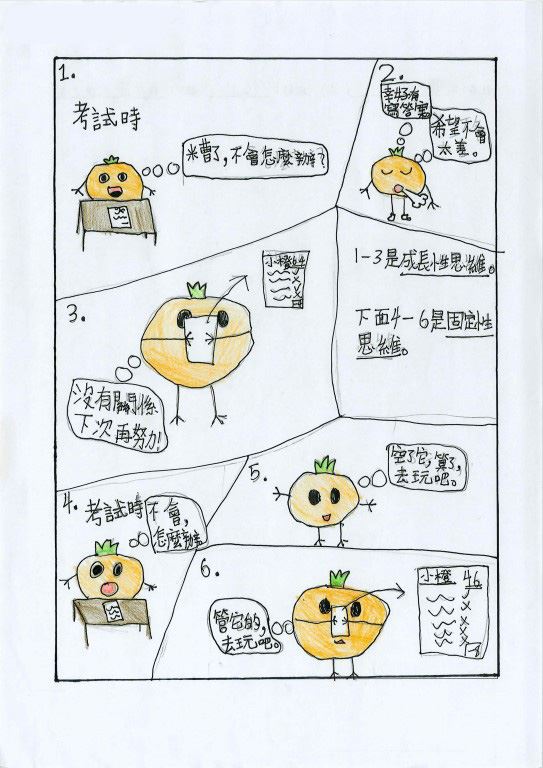 1.
考試時
米曹了，不會怎麼辦？
2.
幸好有
寫答案
希望不會
太差。
3.
小橙
沒有關係
下次再努力！
1-3是成長性思維。
下面4-6是固定性
思維。
4.
考試時
不會，
怎麼辦
5.
空了它，算了，
去玩吧。
6.
小橙 46
管它的，
去玩吧。